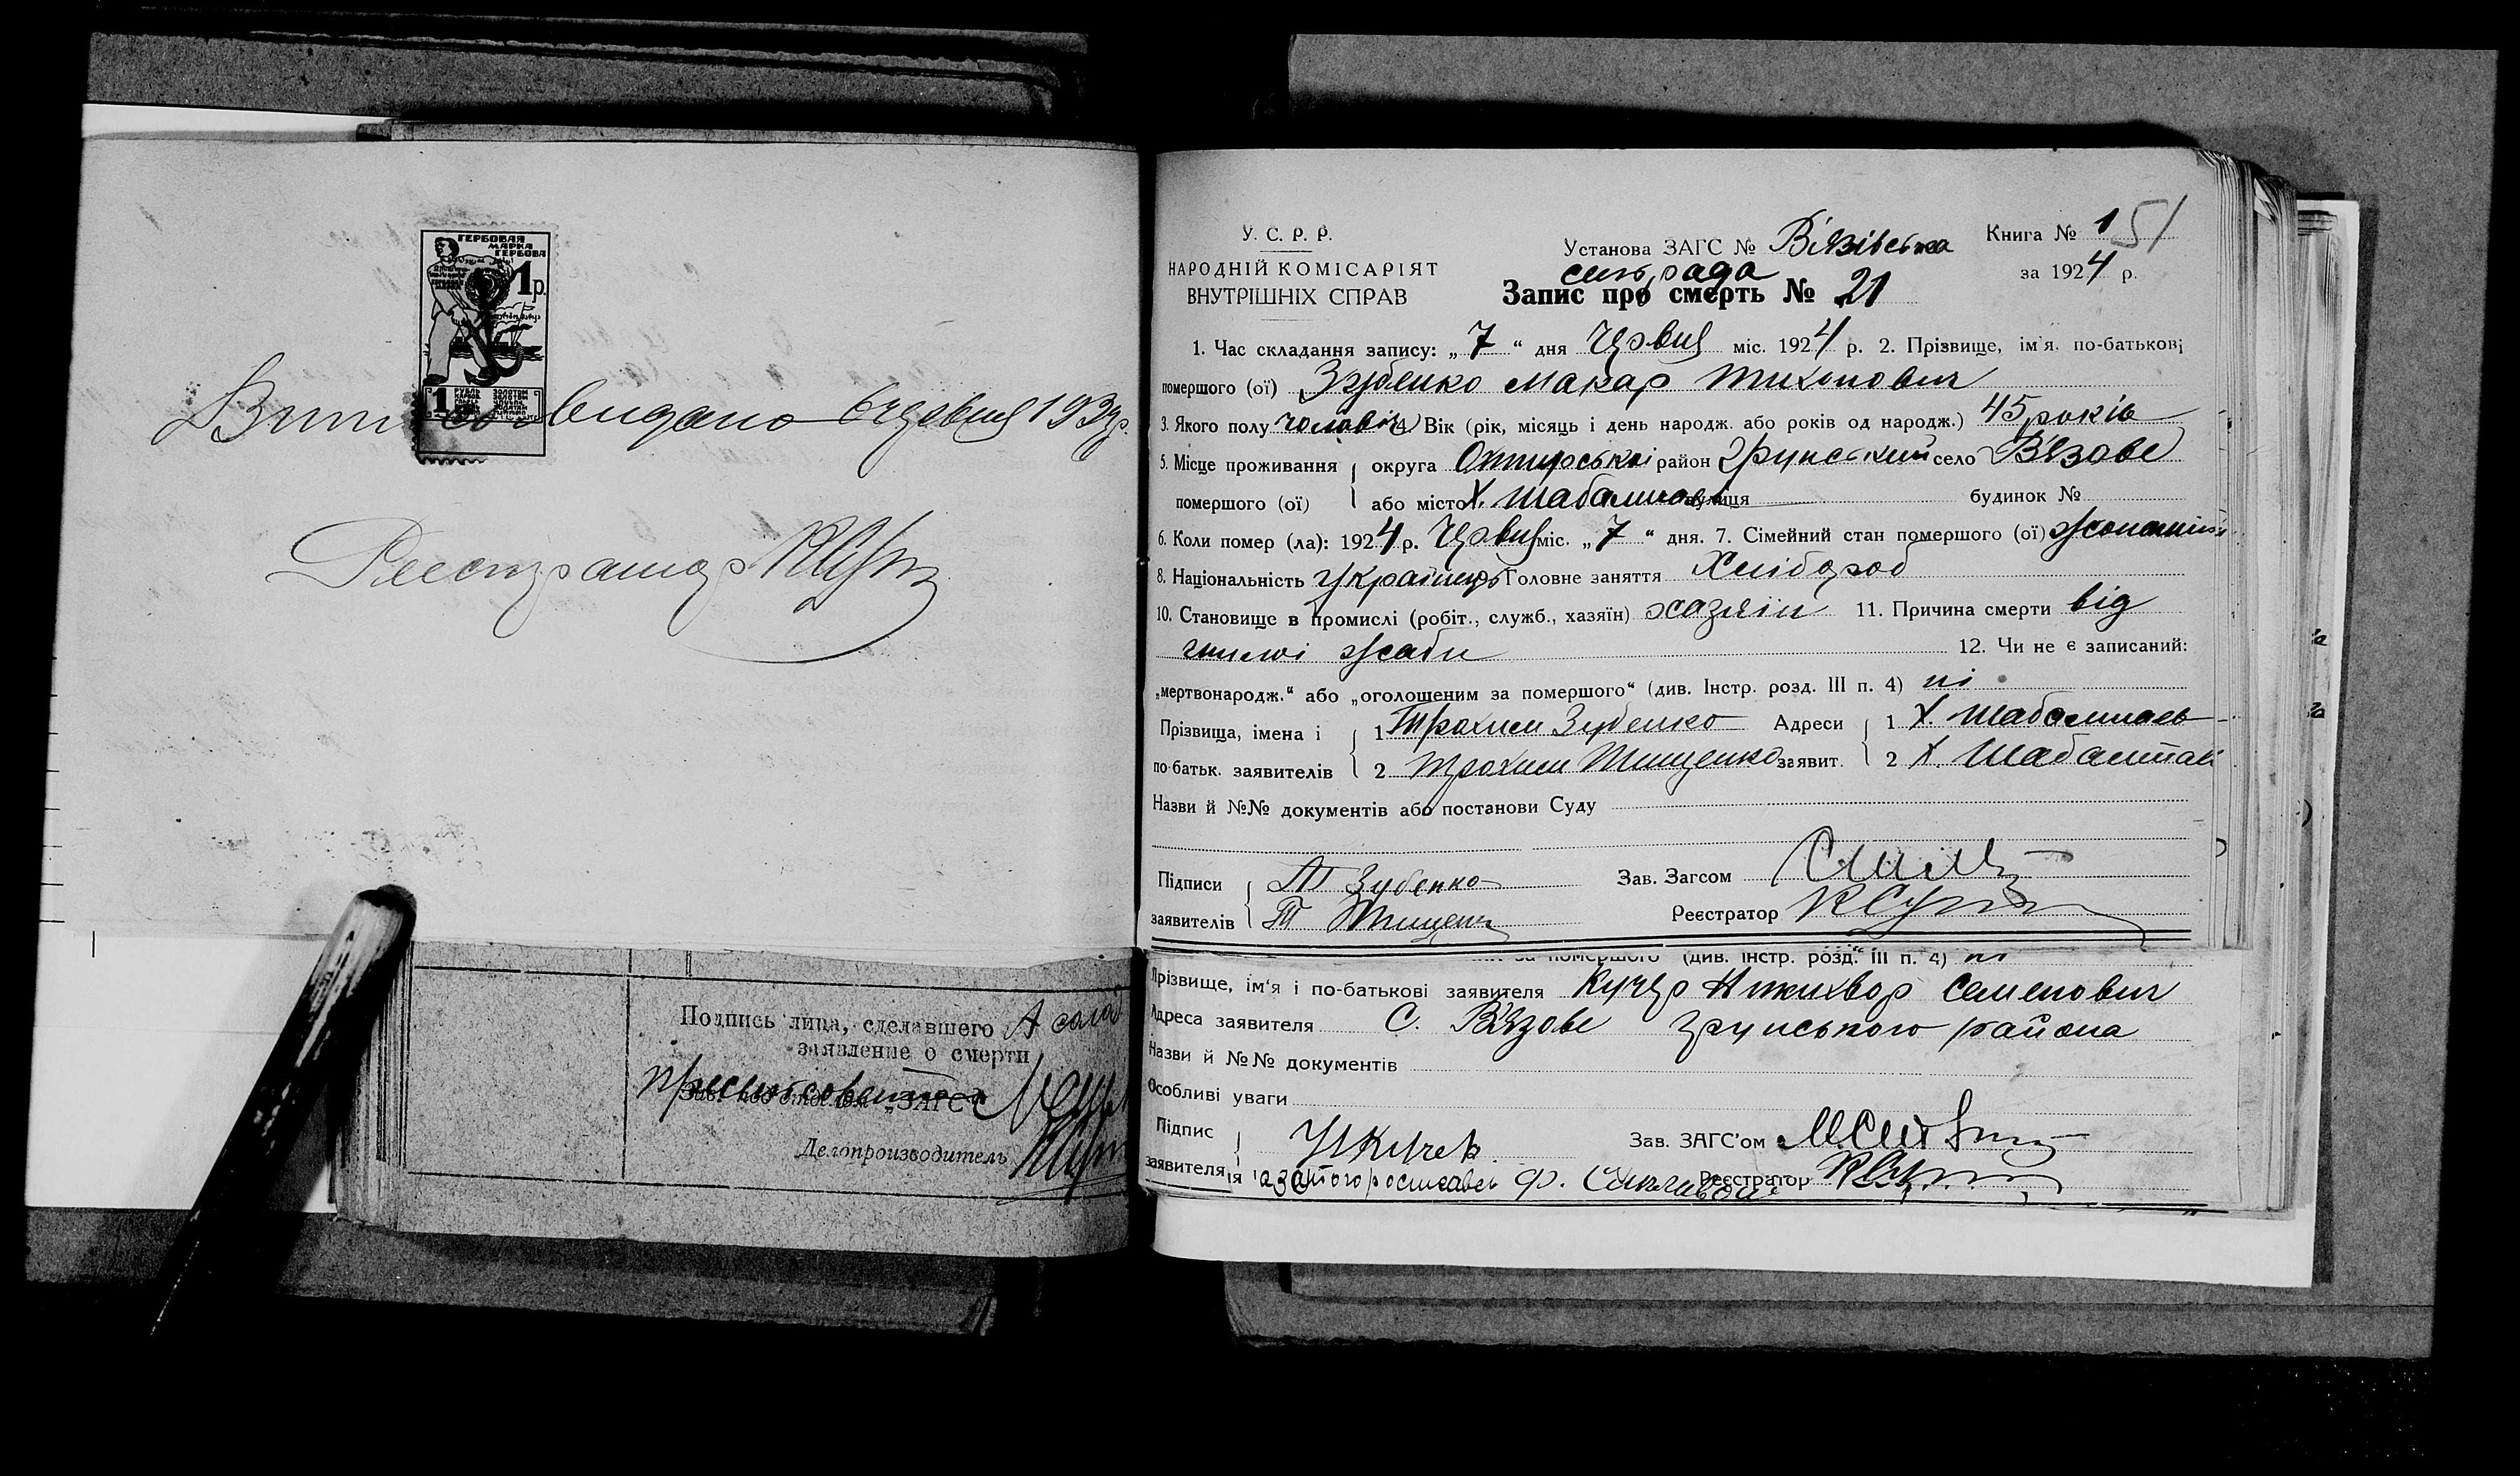 ГЕРБОВАЯ
МАРКА
ГЕРБОВА
1 р.
1 РУБЛЬ ЗОЛОТОМ
видано 6 червця 193
Реестратор
Подпись лица, сделавшего
заявление о смерти
„ЗАГС“
Делопроизводитель
У. С. Р. Р.
НАРОДНІЙ КОМІСАРІЯТ
ВНУТРІШНІХ СПРАВ
Установа ЗАГС № Вязівська
сильрада
Книга № 1 51
за 1924 р.
Запис про смерть № 21
1. Час складання запису: „7“ дня Червця міс. 1924 р. 2. Прізвище, ім'я, по-батькові
помершого (ої) Зубенко Макар Тихонович
3. Якого полу чоловіч 4 Вік (рік, місяць і день народж. або років од народж.) 45 років
5. Місце проживання округа Охтирської район Грунський село В'язове
помершого (ої) або місто Х. вулиця будинок №
6. Коли помер (ла): 1924 р. Червця міс. „7“ дня. 7. Сімейний стан помершого (ої)
8. Національність Українець Головне заняття Хлібороб
10. Становище в промислі (робіт., служб., хазяїн) хазяін 11. Причина смерти від
жаби 12. Чи не є записаний:
„мертвонародж.“ або „оголошеним за помершого“ (див. Інстр. розд. III п. 4) ні
Прізвища, імена і 1 Трохим Зубенко Адреси 1 Х.
по-батьк. заявителів 2 Трохим Тищенко заявит. 2 Х.
Назви й №№ документів або постанови Суду
Підписи Т Зубенко Зав. Загсом
заявителів Т Тищенко Реєстратор
за помершого (див. Інстр. розд. III п. 4) ні
Прізвище, ім'я і по-батькові заявителя Кучер Никихвор Семенович
Адреса заявителя С. В'язове Грунського района
Назви й №№ документів
Особливі уваги
Підпис Зав. ЗАГС'ом
заявителя Реєстратор